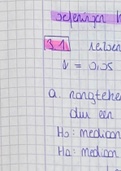 oefeningen h
3.1
α = 0,05
a. rangteken
dus een
H₀: mediaan
Ha: mediaan